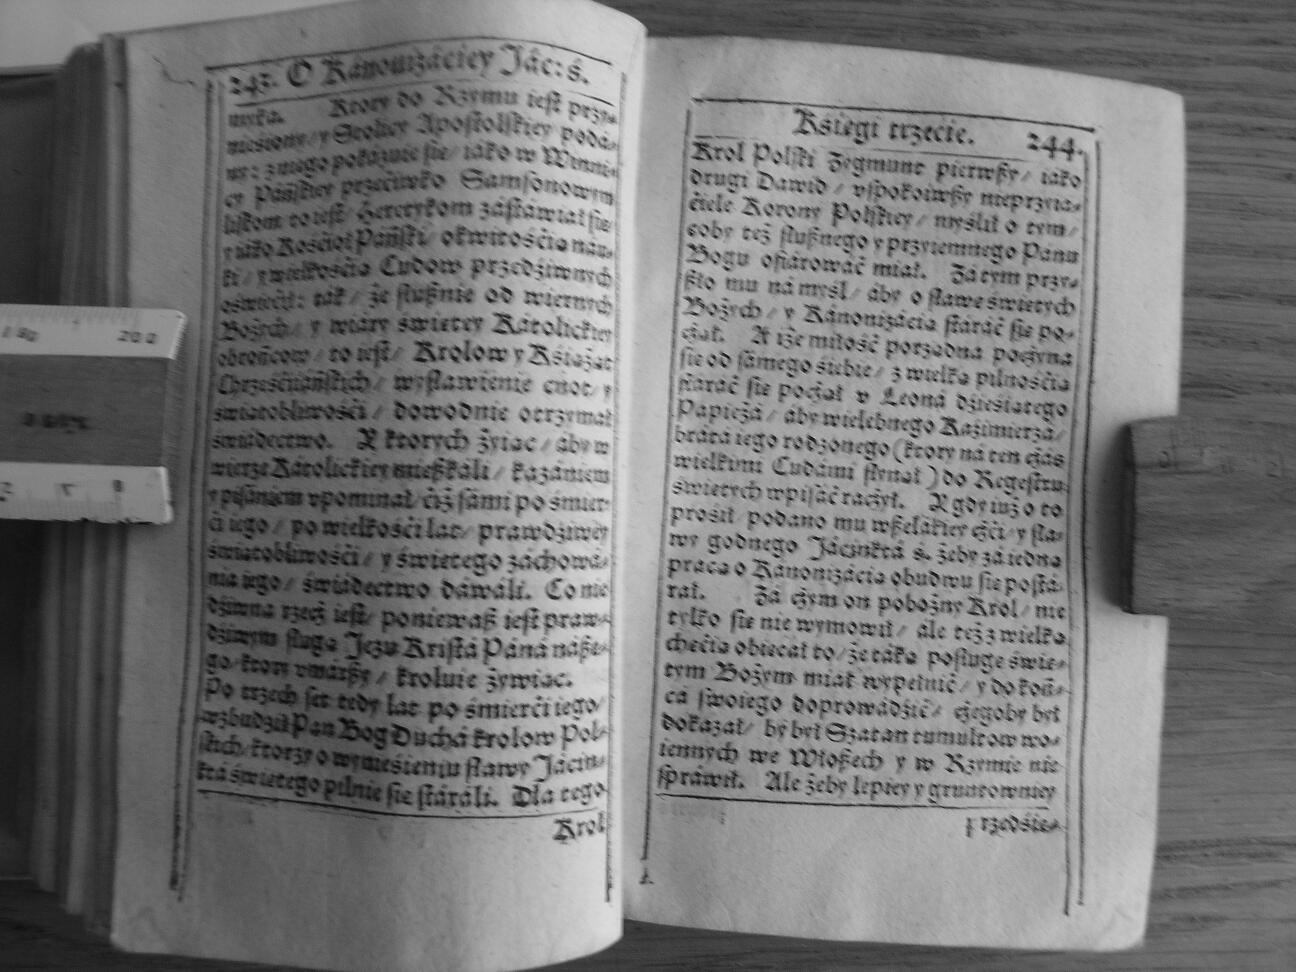 243. O Kánonizáciey Jác: ś.
nyká. Ktory do Rzymu iest przy-
niesiony / y Stolicy Apostolskiey podá-
ny: z niego pokázuie sie / iáko w Winni-
cy Páńskiey przećiwko Samsonowym
liszkom to iest / Heretykom zástáwiał sie /
y iáko Kośćioł Páński / okwitośćią náu-
ki / y wielkośćią Cudow przedźiwnych
oświećił: ták / że słusznie od wiernych
Bożych / y wiáry świetey Kátolickiey
obrońcow / to iest / Krolow y Kśiążąt
Chrześćiáńskich / wysławienie cnot / y
świątobliwośći / dowodnie otrzymał
świádectwo. Y ktorych żyiąc / áby w
wierze Kátolickiey mieszkáli / kazániem
y pisániem vpominał / ćiż sámi po śmier-
ći iego / po wielkośći lat / prawdźiwey
świątobliwośći / y świetego záchowá-
nia iego / świádectwo dawáli. Co nie
dźiwna rzecz iest / poniewasz iest praw-
dźiwym sługą Jezu Kristá Páná násze-
go / ktory vmárszy / kroluie żywiąc.
Po trzech set tedy lat po śmierći iego /
wzbudźił Pan Bog Duchá Krolow Pol-
skich / ktorzy o wyniesieniu sławy Jácin-
ktá świetego pilnie sie stáráli. Dla tego
Krol
Kśięgi trzećie. 244.
Krol Polski Zygmunt pierwszy / iáko
drugi Dawid / vspokoiwszy nieprzyia-
ćiele Korony Polskiey / myślił o tym /
coby też słusznego y przyiemnego Pánu
Bogu ofiárowáć miał. Zátym przy-
szło mu ná myśl / áby o sławe świetych
Bożych / y Kánonizácią stáráć sie po-
czął. A iże miłość porządna poczyna
sie od sámego śiebie / z wielką pilnośćią
stáráć sie począł v Leoná dźieśiątego
Papieżá / áby wielebnego Kaźimierzá /
brátá iego rodzonego (ktory ná ten czás
wielkimi Cudámi słynął) do Regestru
świetych wpisáć raczył. Y gdy iuż o to
prośił / podano mu wszelákiey czći / y sła-
wy godnego Jácinktá ś. żeby zá iedną
pracą o Kánonizácią obudwu sie postá-
rał. Zá czym on pobożny Krol / nie
tylko sie nie wymowił / ále też z wielką
chećią obiecał to / że táką posługe świe-
tym Bożym miał wypełnić / y do koń-
cá swoiego doprowádźić / czegoby był
dokazał / by był Szatan tumultow wo-
iennych we Włoszech y w Rzymie nie
spráwił. Ale żeby lepiey y gruntowniey
przedśie-